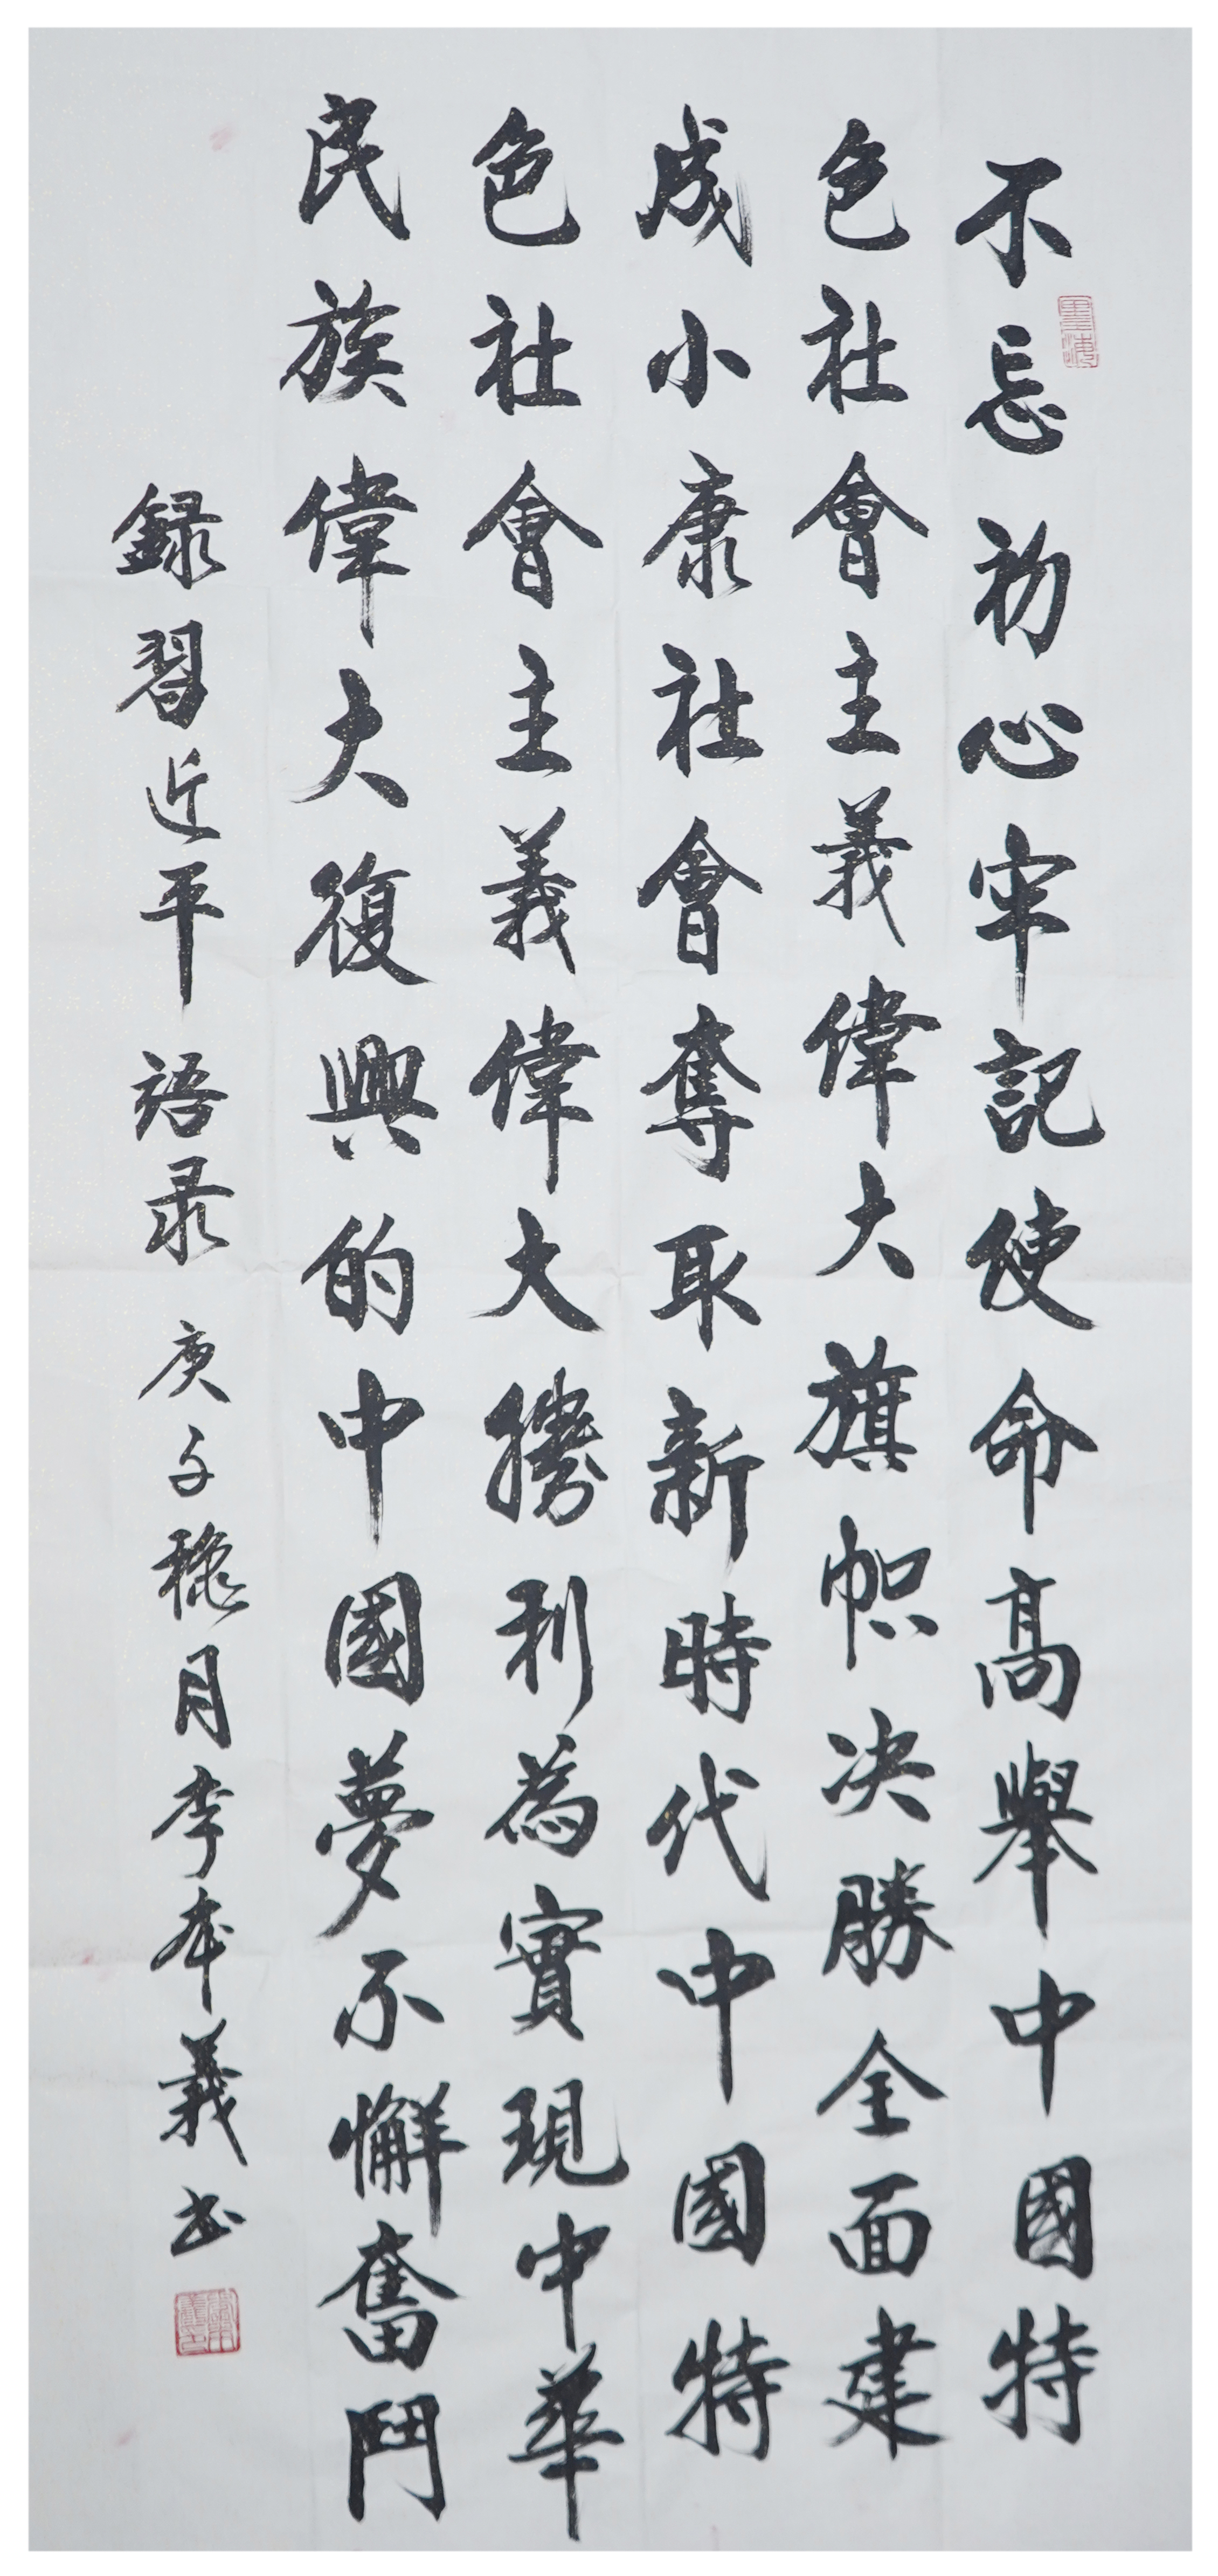 不忘初心牢記使命高舉中國特
色社會主義偉大旗幟決勝全面建
成小康社會奪取新時代中國特
色社會主義偉大勝利為實現中華
民族偉大復興的中國夢不懈奮鬥
録習近平語录庚子穐月李本義书
墨海